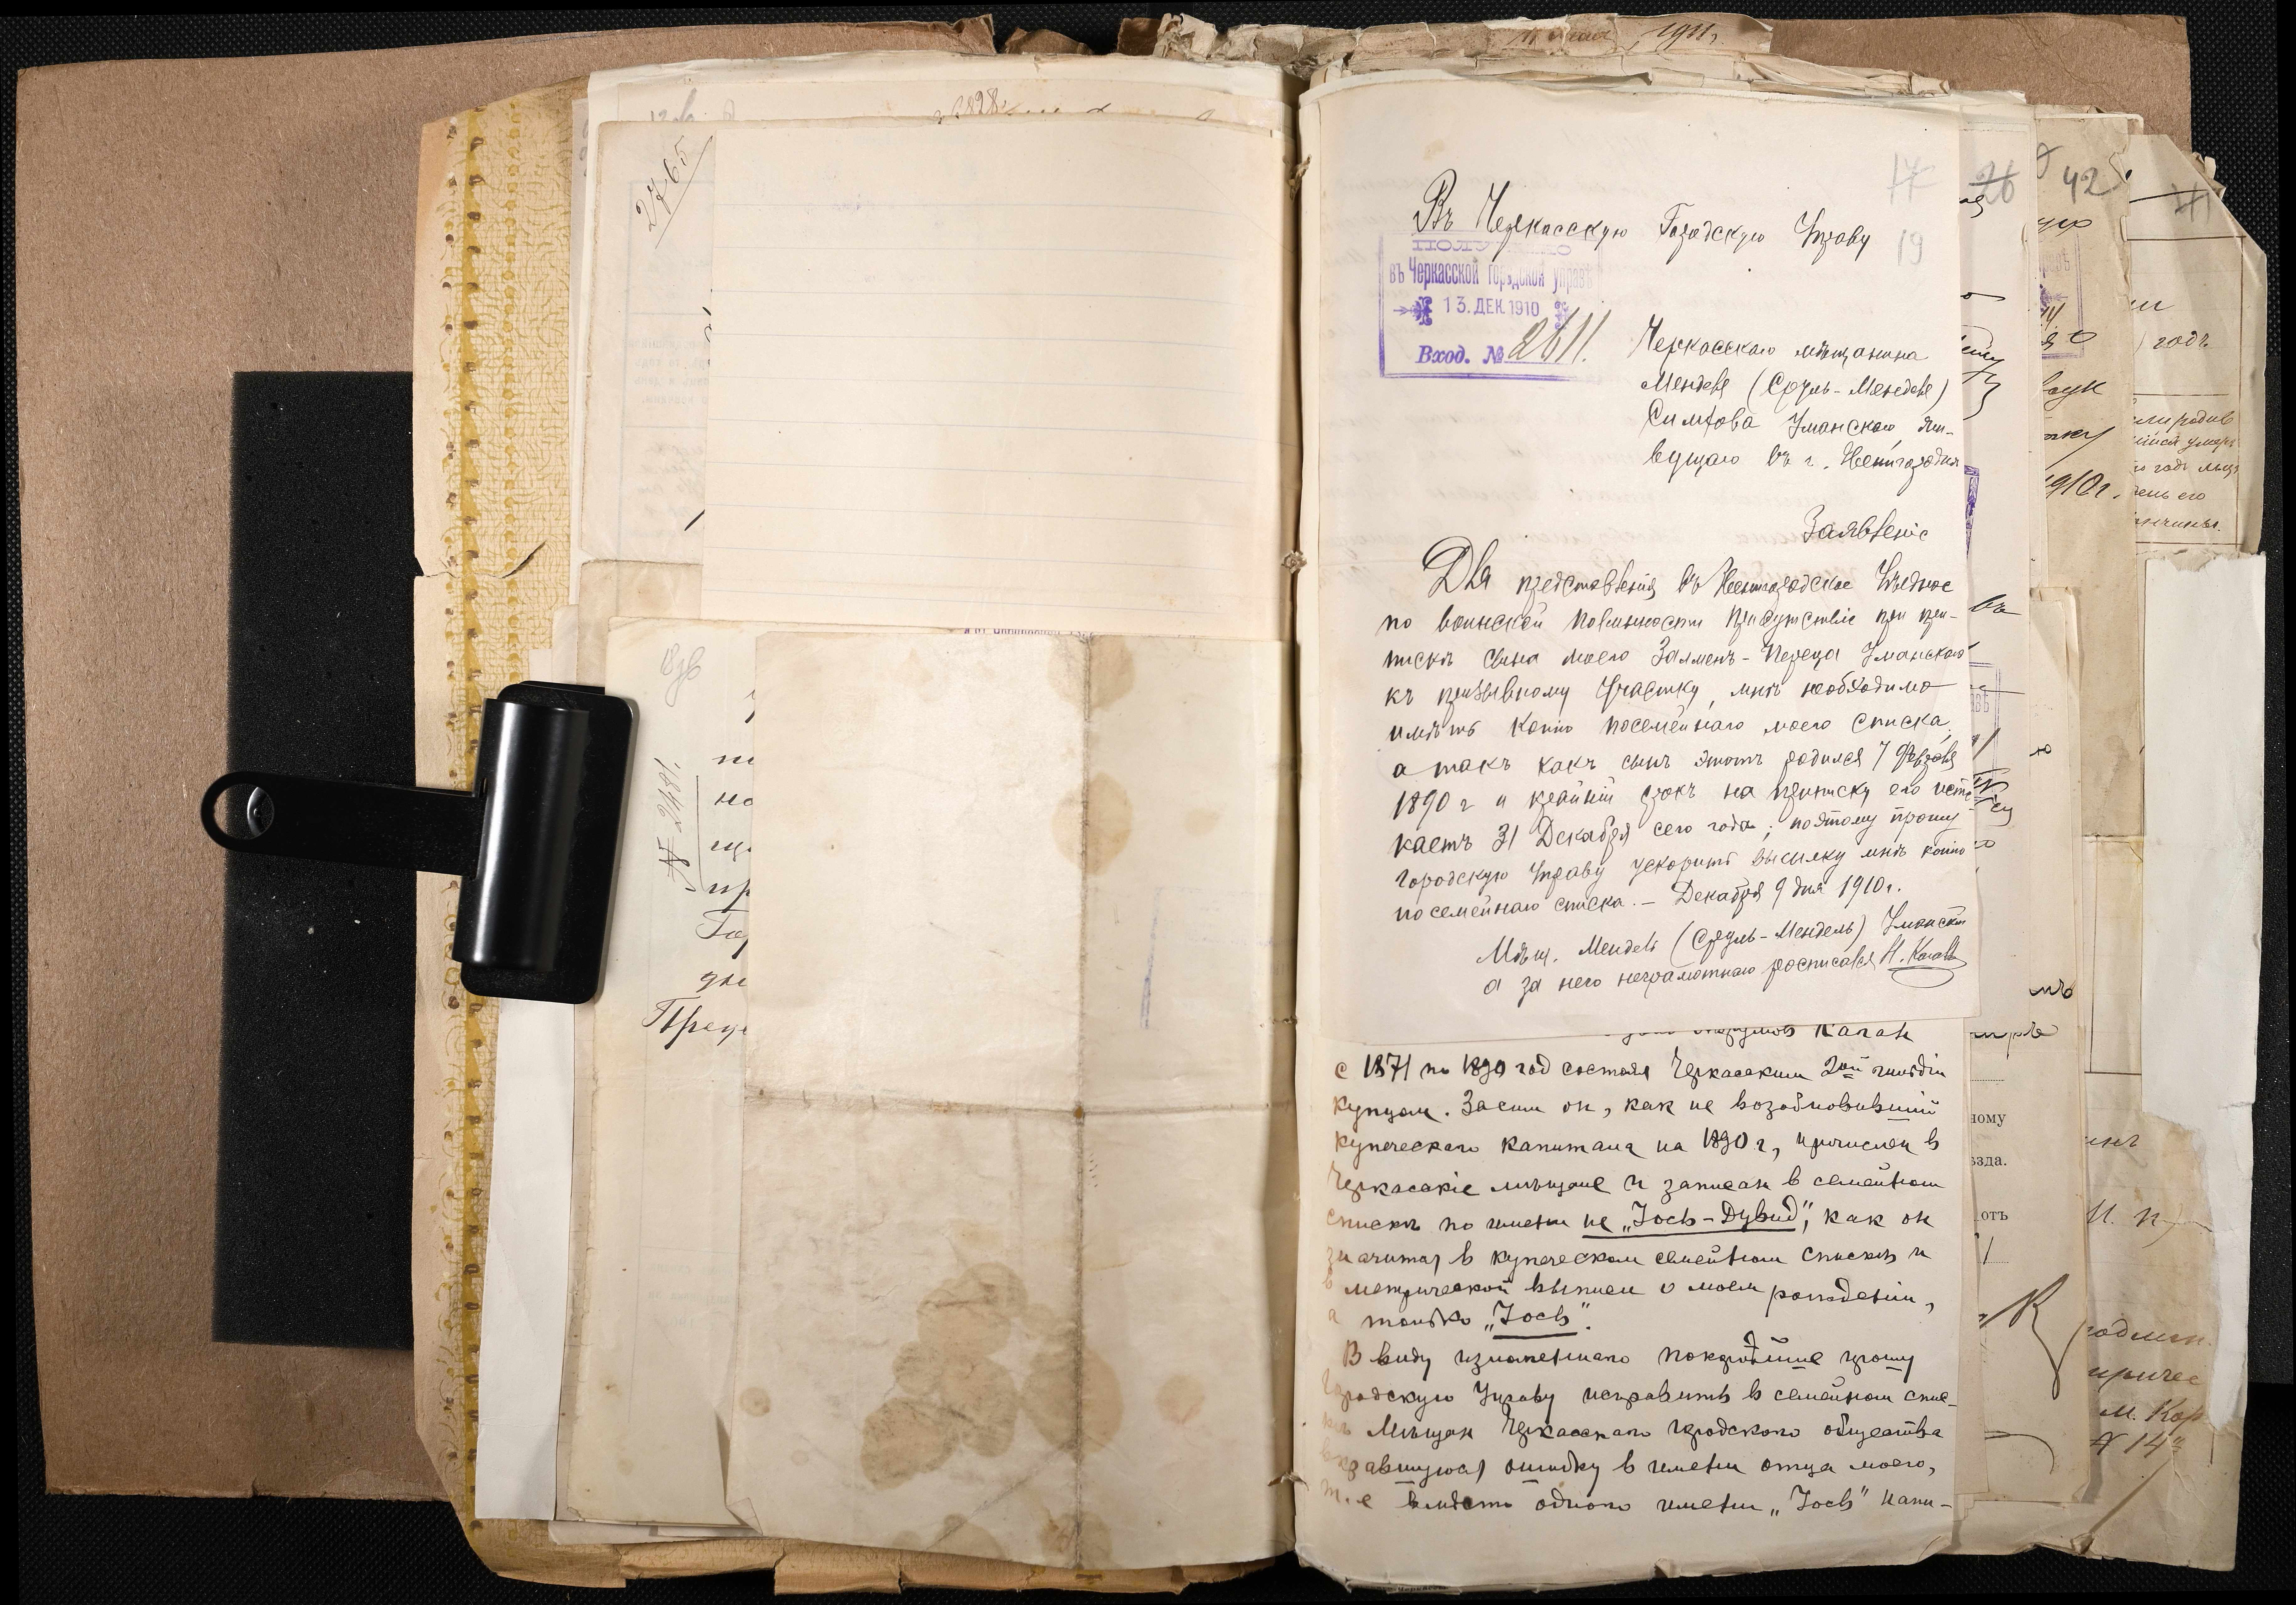 1911,
2765
2828
17
19
26
42
Въ Черкасскую Городскую Управу
ПОЛУЧЕНО
въ Черкасской городской управѣ
13. ДЕК. 1910
Вход. № 2611.
Черкасскаго мѣщанина
Менделя (Сруль-Менделя)
Симхова Уманскаго, жи-
вущаго въ г. Звенигородкѣ
Заявленіе
Для представленія въ Звенигородское Уѣздное
по воинской повинности Присутствіе при при-
пискѣ сына моего Залменъ-Переца Уманскаго
къ призывному участку, мнѣ необходимо
имѣть копію посемейнаго моего списка,
а такъ какъ сынъ этотъ родился 7 Февраля
1890 г и крайній срокъ на приписку его исте-
каетъ 31 Декабря сего года; поэтому прошу
городскую Управу ускорить высылку мнѣ копію
посемейнаго списка. – Декабря 9 дня 1910 г.
Мѣщ. Мендель (Сруль-Мендель) Уманскій
а за него неграмотнаго росписался Н. Коган
Каган
с 1871 по 1890 год состоял Черкасским 2ой гильдіи
купцом. Засим он, как не возобновившій
купеческаго капитала на 1890 г, причислен в
Черкасскіе мѣщане и записан в семейном
спискѣ по имени не „Іось-Дувид", как он
значится в купеческом семейном спискѣ и
в метрической выписи о моем рожденіи,
а только „Іось".
В виду изложеннаго покорнѣйше прошу
Городскую Управу исправить в семейном спис-
кѣ Мѣщан Черкасскаго городского общества
вкравшуюся ошибку в имени отца моего,
т. е вмѣсто одного имени „Іось" напи-
№ 2481.
1910 г.
годъ
ному
ѣзда.
отъ